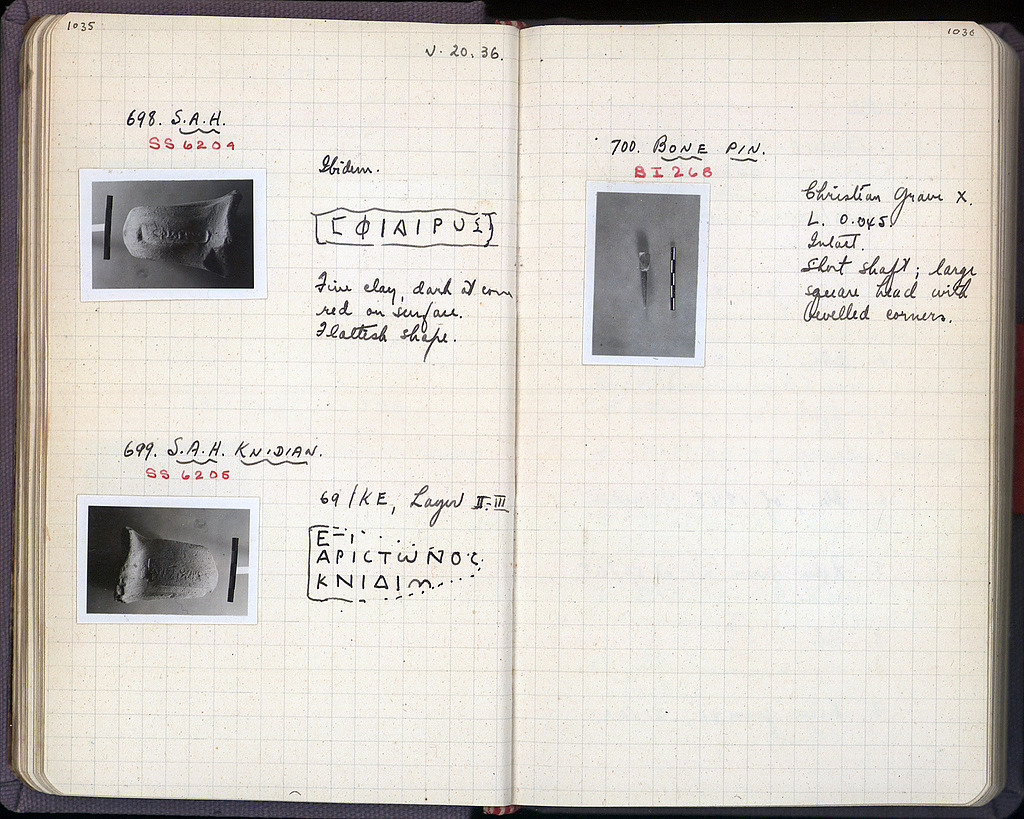 1035
V. 20. 36.
698. S.A.H.
SS 6204
Ibidem.
[ΣΦΙΑΙΡΥΣ]
Fine clay, dark at core
red on surface.
Flattish shape.
699. S.A.H. KNIDIAN.
SS 6205
69/KE, Layer II-III
ΕΠΙ....
ΑΡΙCΤΩΝΟC
ΚΝΙΔΙ
1036
700. BONE PIN.
BI 268
Christian Grave X.
L. 0.045.
Intact.
Short shaft; large
square head with
bevelled corners.